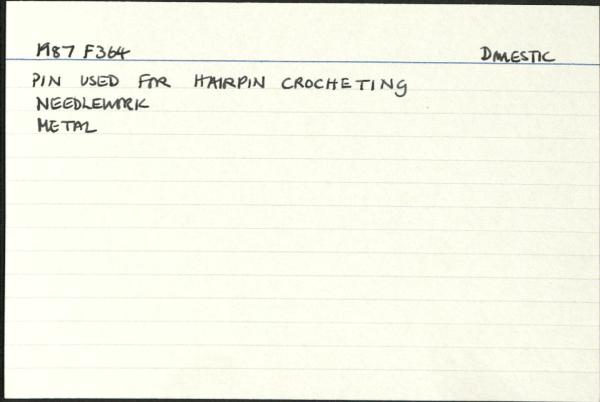 M87 F364 DOMESTIC
PIN USED FOR HAIRPIN CROCHETING
NEEDLEWORK
METAL